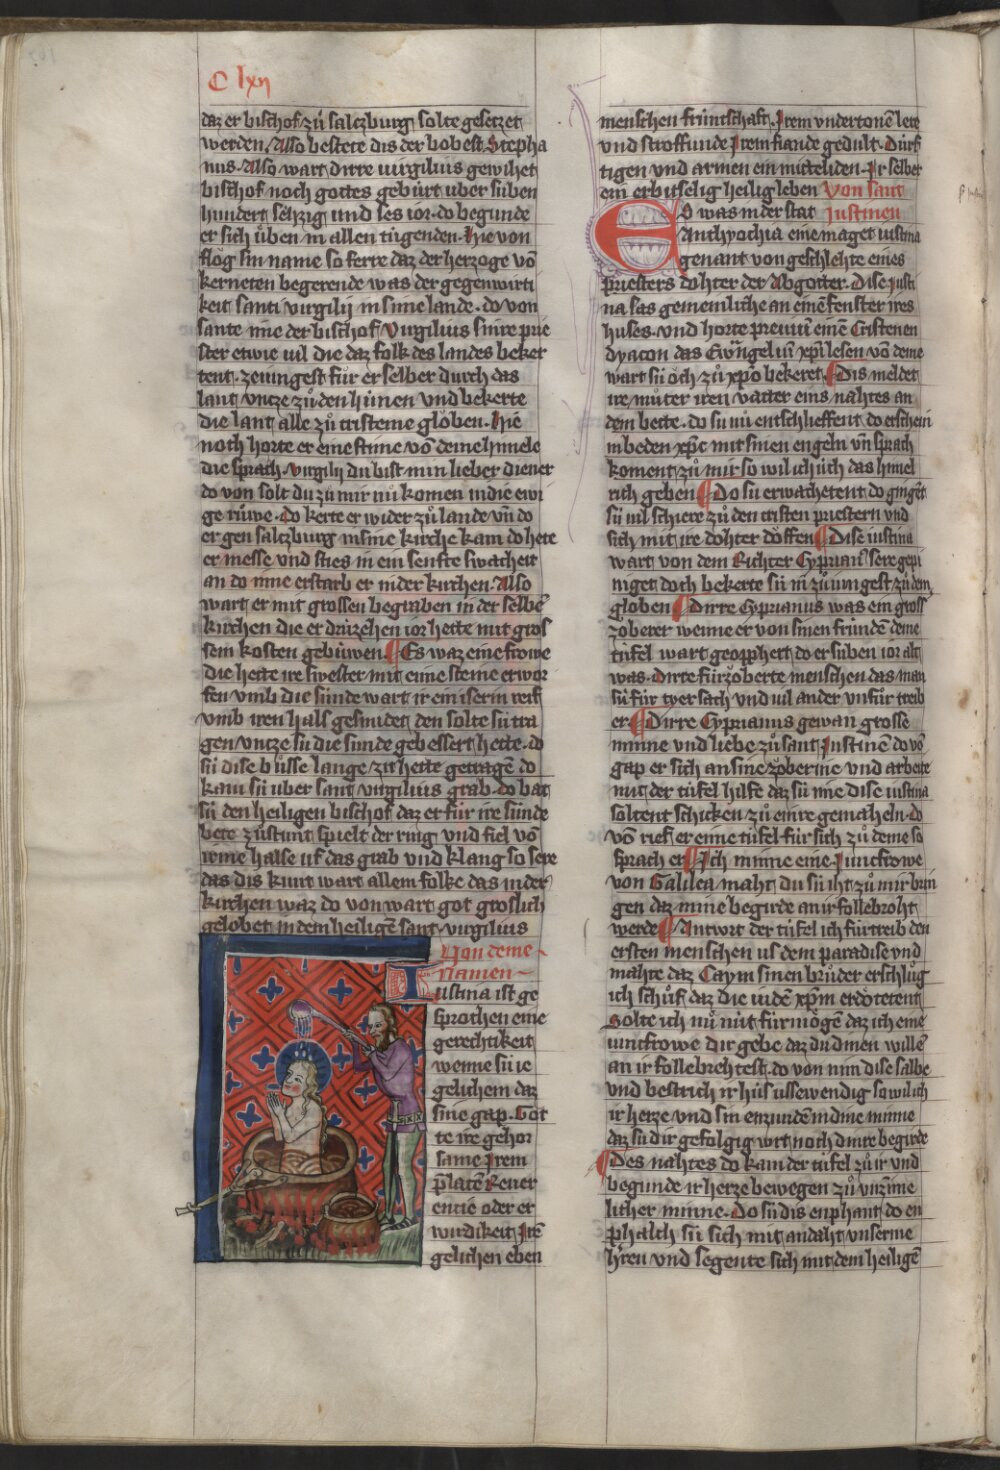 C lxij
daz er bischof zů salczburg solte gesetzet
werden / Also bestete dis der bobest Stepha
nus · Also wart dirre uirgilius gewihet
bischof noch gottes gebúrt uber súben
hundert sehzig und ses ior · do begunde
er sich ůben in allen túgenden · Hie von
flog sin name so ferre daz der herzoge võ
kerneten begerende was der gegenwirti
keit santi virgilij in sime lande · do von
sante ime der bischof Virgilius sinre prie
ster etwie uil die daz folk des landes beker
tent · zeiungest fůr er selber durch das
lant vntze zů den húnen und bekerte
die lant alle zů cristeme globen · Hie
noch horte er eine stime võ deme himele
die sprach · virgilij du bist min lieber diener
do von solt du zů mir nů komen in die ewi
ge růwe · do kerte er wider zů lande vñ do
er gen salczburg in sine kirche kam do hete
er messe und sties in ein senfte swacheit
an do inne erstarb er in der kirchen · Also
wart er mit grossen begraben in der selbẽ
kirchen die er drizehen ior hette mit gros
sem kosten gebuwen Es waz eine frowe
die hette ire swester mit eime steine erwor
fen vmb die súnde wart ir ein iserin reif
vmb iren hals gesmidet den solte sú tra
gen vntze sú die sunde gebessert hette · do
sú dise bůsse lange zit hette getragẽ do
kam sú uber sant virgilius grab · do bat
sú den heiligen bischof daz er fúr ire súnde
bete zůstunt spielt der ring und fiel võ
irme halse uf das grab und klang so sere
das dis kunt wart allem folke das in der
kirchen waz do von wart got groslich
gelobet in dem heiligẽ sant virgilius
Von deme
Namen
Iustina ist ge
sprochen eine
gerechtikeit
wenne sú ie
gelichem daz
sine gap · Got
te ire gehor
same Irem
p̃laten Reuer
entie oder er
wirdikeit Irẽ
gelichen eben
menschen frúntschaft · Irem undertonẽ lere
und stroffunde Irem fiande gedult · Dúrf
tigen und armen ein mitteliden · Ir selber
ein erbitselig heilig leben Von sant
Justinen
Eo was in der stat
Anthyochia eine maget iustina
genant von geschlehte eines
priesters dohter der Abgotter · Dise Justi
na sas gemeinliche an einẽ fenster ires
huses · und horte premiũ einẽ Cristenen
dyacon das Ewangeliũ xpĩ lesen võ deme
wart sú och zů xp̃o bekeret Dis meldet
ire můter iren vatter eins nahtes an
dem bette · do su nů entschlieffent do erschein
in beden xp̃c mit sinen engeln vñ sprach
koment zů mir so wil ich úch das himel
rich geben Do su erwachetent do gingẽt
sú uil schiere zů den cristen priestern und
sich mit ire dohter dôffen Dise iustina
wart von dem Richter Cyprianˀ sere gepi
niget doch bekerte sú in zů iungest zů dem
globen Dirre Cyprianus was ein gross
zoberer wenne er von sinen frúndẽ deme
túfel wart geopphert do er súben ior alt
was · dirre fúrzoberte menschen das man
sú fúr tyer sach und uil ander unfůr treib
er Dirre Cyprianus gewan grosse
minne und liebe zů sant Justinẽ do võ
gap er sich an sine zôberine und arbeite
mit der túfel hilfe daz sú ime dise iustina
soltent schicken zů einre gemaheln · do
võ rief er eime túfel fúr sich zů deme so
sprach er Ich minne eine Juncfrowe
von Galilea maht du sú iht zů mir brin
gen daz mine begirde an ir follebroht
werde Antwirt der túfel ich fúrtreib den
ersten menschen us dem paradise vnd
mahte daz Caym sinen brůder erschlůg
ich schůf daz die iudẽ xp̃m erdôtetent
Solte ich nů nút fúrmôgẽ daz ich eine
iuncfrowe dir gebe daz du dinen willẽ
an ir follebrehtest · do von nim dise salbe
und bestrich ir hus ussewendig so wil ich
ir herze und sin enzúnden in dine minne
daz sú dir gefolgig wirt noch dinre begirde
Des nahtes do kam der túfel zů ir und
begunde ir herze bewegen zů vnzime
licher minne · Do sú dis enphant do en
phalch sú sich mit andaht unserme
hr̃ren und segente sich mit dem heiligẽ